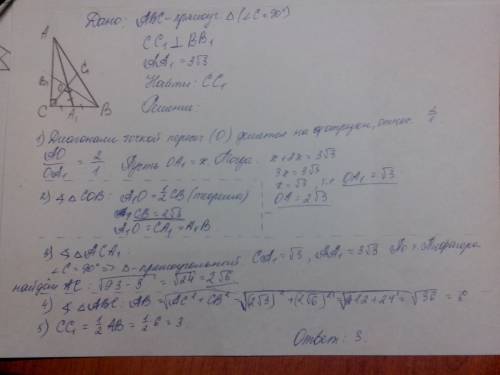 Дано: ABC - прямоуг. Δ (∠C = 90°)
CC₁ ⊥ BB₁
AA₁ = 3√3
Найти: CC₁
Решение:
A
B₁
C₁
O
C
A₁
B
1) точкой перес (O) делится на отрезки, относ. 2/1
AO/OA₁ = 2/1 Пусть OA₁ = x Тогда x + 2x = 3√3
3x = 3√3
x = √3, OA₁ = √3
OA = 2√3
2) ∢ΔCOB: A₁O = ½CB (теорема)
CB = 2√3
A₁O = CA₁ = A₁B
3) ∢ΔACA₁:
∠C = 90° => Δ - прямоугольный CA₁ = √3, AA₁ = 3√3 По т. Пифагора
найдём AC: = √24 = 2√6
4) ∢ΔABC: AB = √AC² + CB² = √(2√3)² + (2√6)² = √12 + 24 = √36 = 6
5) CC₁ = ½AB = ½·6 = 3
Ответ: 3.